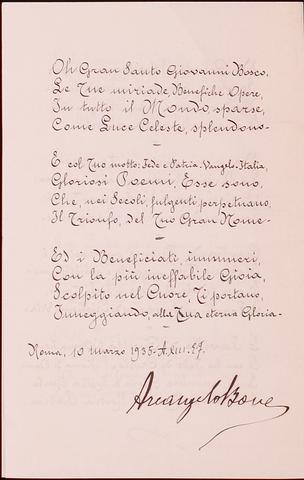 Oh Gran Santo Giovanni Bosco,
Le Tue miriade, Benefiche Opere,
In tutto il Mondo, sparse,
Come Luce Celeste, splendono-
E col Tuo motto: Fede e Patria-Vangelo-Italia,
Gloriosi Poemi, Esse sono,
Che, nei Secoli, fulgenti, perpetuano,
Il Trionfo, del Tuo Gran Nome-
Ed i Beneficiati, innumeri,
Con la più ineffabile Gioia,
Scolpito nel Cuore, Ti portano,
Inneggiando, alla Tua eterna Gloria-
Roma, 10 marzo 1935-A.XIII.E.F.
Arcangelo Bove